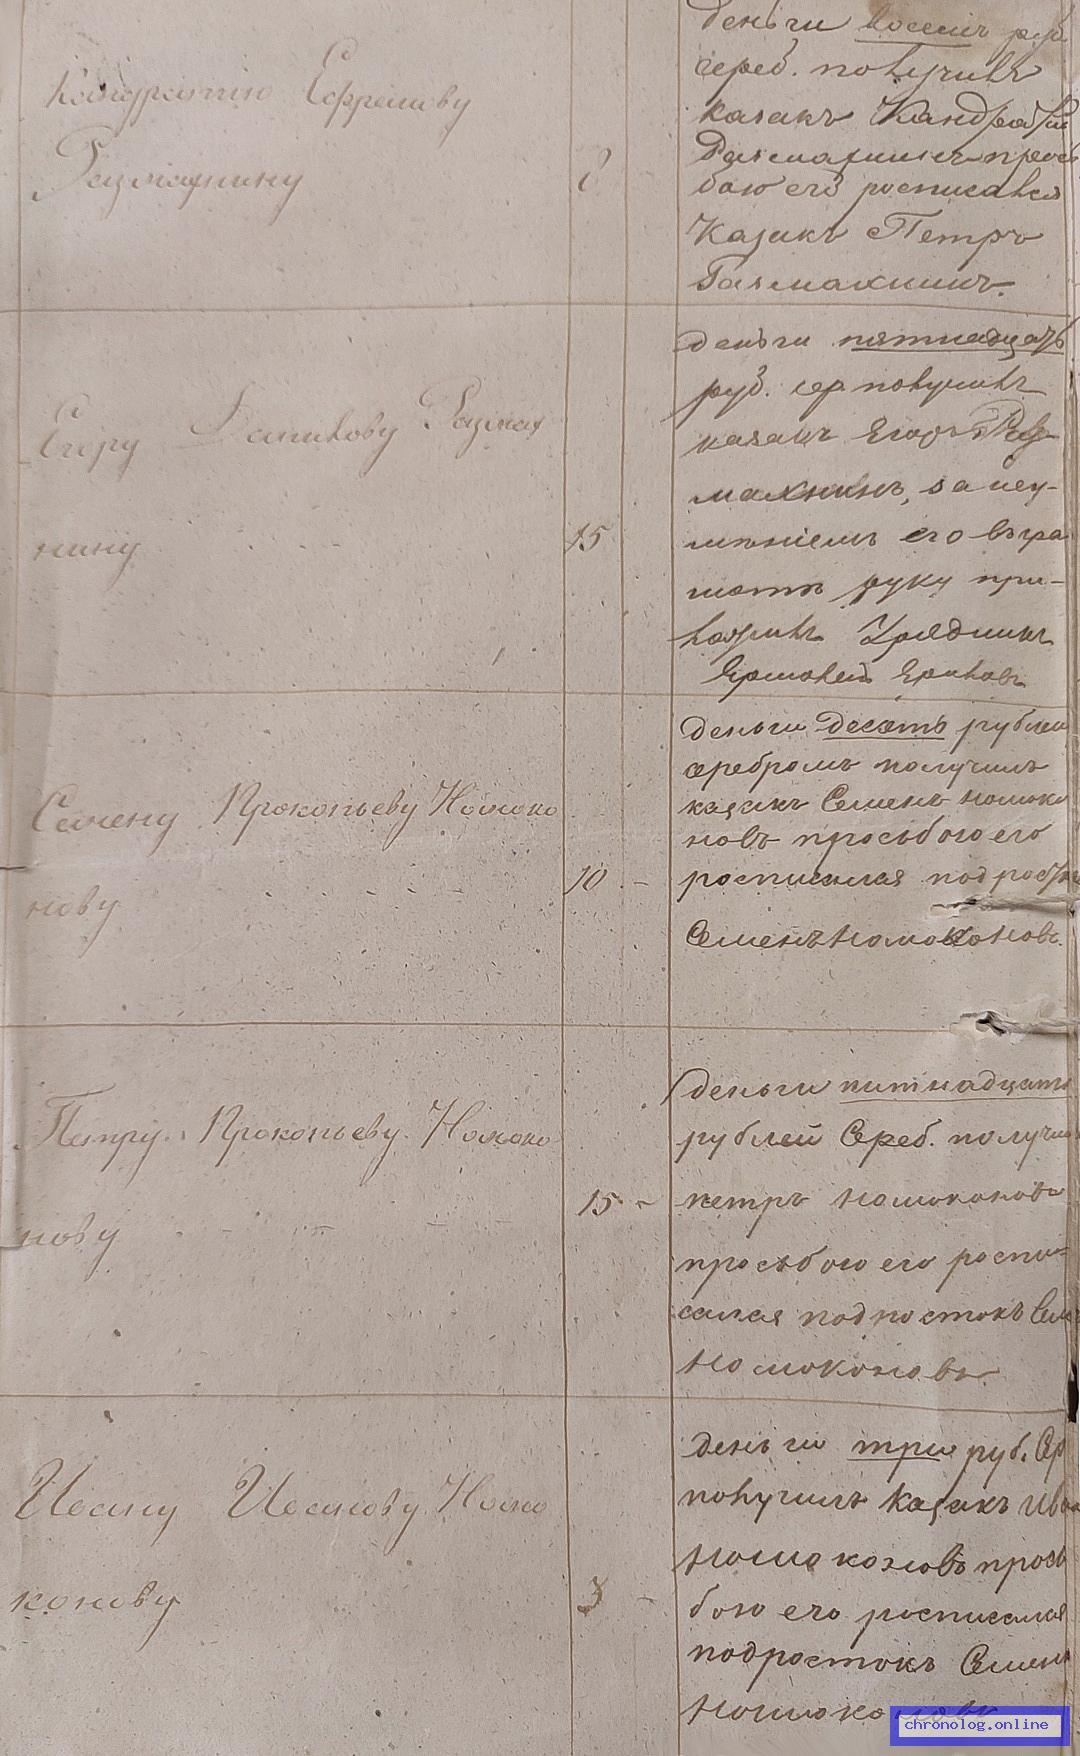 Кондратию Ефремову
Размахнину
8
деньги восемь руб
сереб. получилъ
казакъ Кандратiй
Размахнинъ прозь
бою его росписался
Казакъ Петръ
Размахнинъ.
Егору Данилову Размах
нину
15
деньги пятнадцать
руб. сер получилъ
казакъ Егоръ Раз-
махнинъ, за неу-
мѣнiемъ его въ гра
мотѣ руку при-
ложилъ Урядникъ
Ермолей
Семену Прокопьеву Номоко
нову
10 -
деньги десять рублей
серебромъ получилъ
казакъ Семенъ Номоко
новъ прозьбою его
росписался подросток
Семенъ Номоконовъ.
Петру Прокопьеву Номоко
нову
15 -
деньги пятнадцать
рублей Сереб. получил
петръ Номоконовъ
прозьбою его роспи-
сался подростокъ Сем
Номоконовъ
Ивану Иванову Номо
конову
3 -
деньги три руб. Сер
получилъ казакъ Ива
Номоконовъ прозь
бою его росписался
подростокъ Семенъ
Номоконовъ
chronolog.online